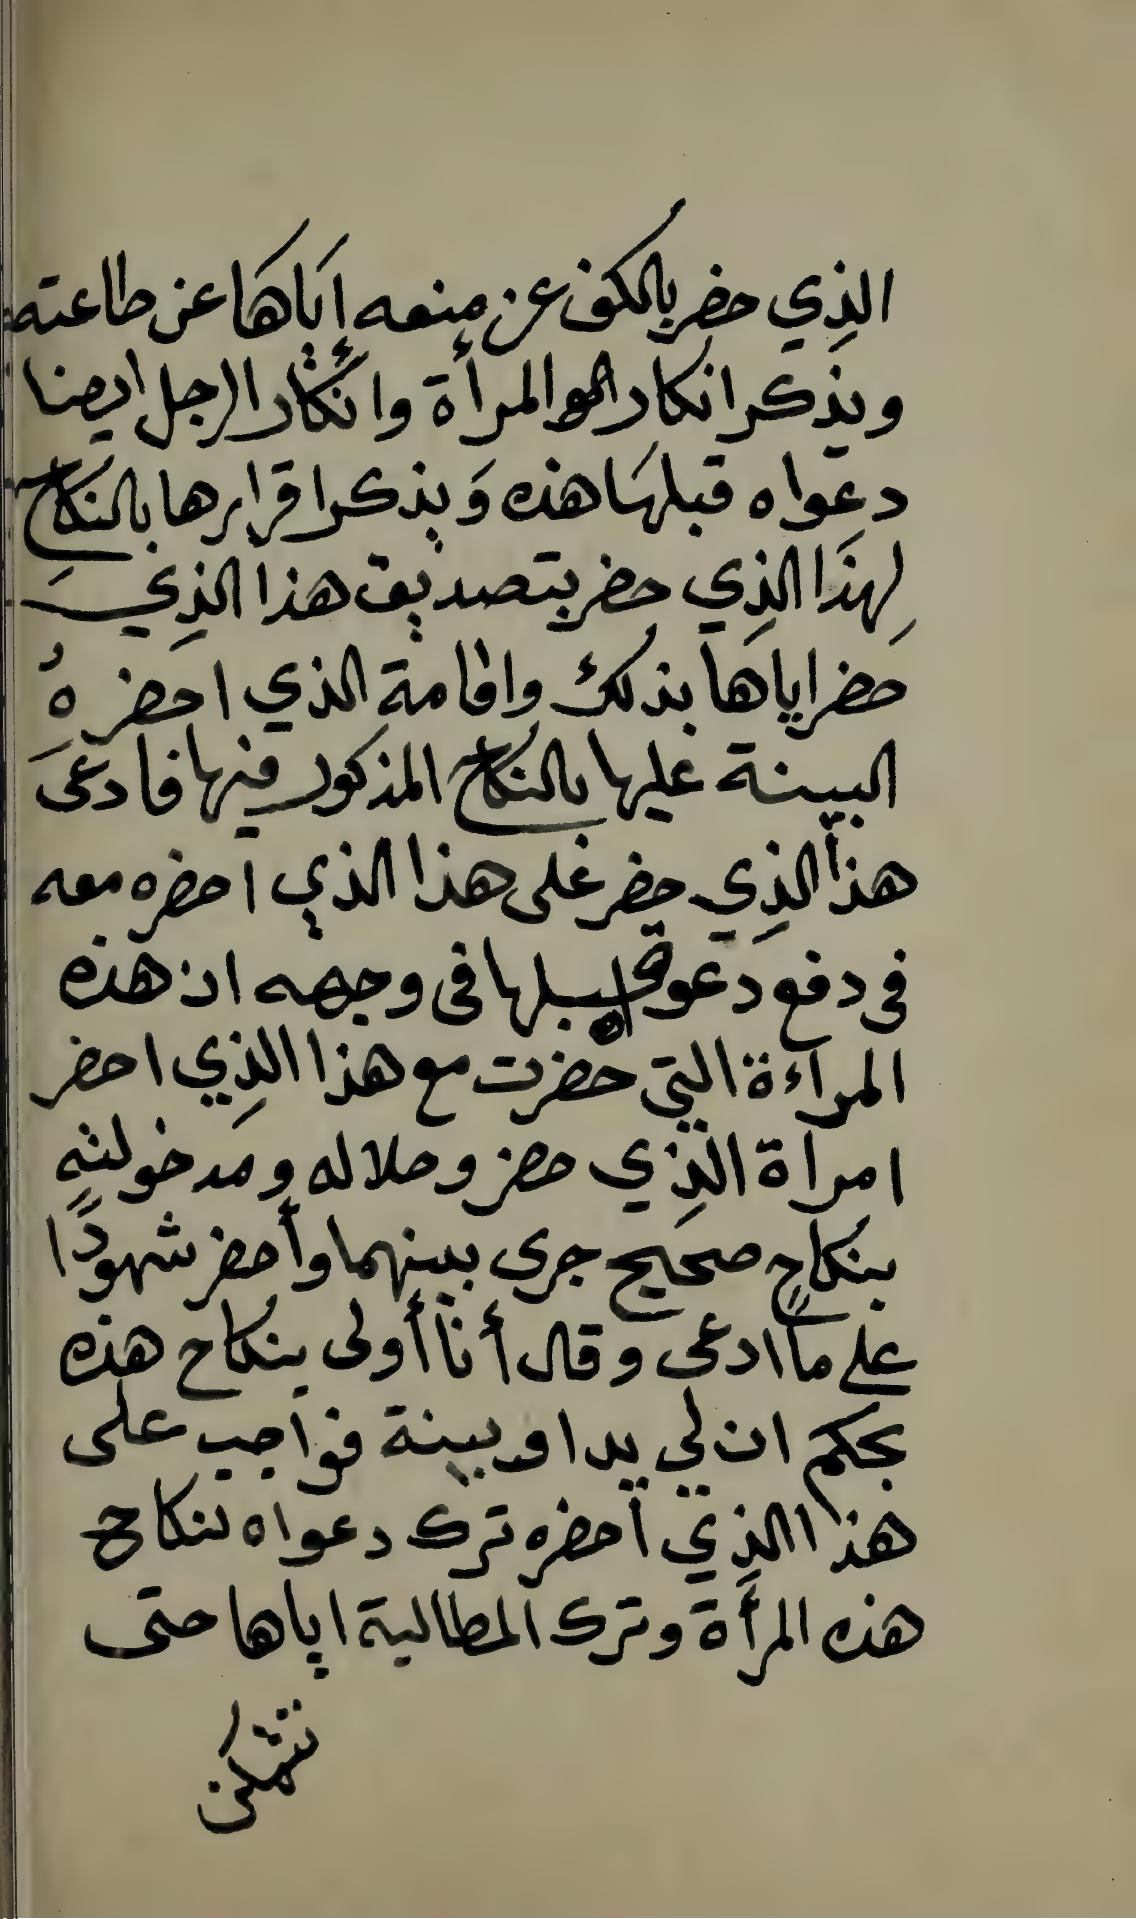 الذِي حضر بالكف عن مِنعه إَيَاهَا عن طاعته
ويذكر انكار المرأة وانكار الرجل ايضا
دعواه قبلهَا هذه وَيذكر اقرارها بالنكاح
لِهذَا الذِي حضر بتصديق هذا الذِي
حَضر اياها بذلك واقامة الذي احضرهُ
البينة عليها بالنكاح المذكور فيها فادعَى
هذا الذِي حضر على هذا الذي احضره معه
في دفع دعوة قبلها في وجهه ان هذه
المراءة التي حضرت مع هذا الذِي احضر
امرأة الذِي حضر وحلاله ومدخولته
بنكاحٍ صحَيح جرى بينهما وأحضر شهودًا
على ما ادعى وقال أنا أولى بنكاح هذه
بحكم ان لي يدا وبينة فواجب على
هذا الذِي احضره ترك دعواه لنكاح
هذه المرأة وترك المطالبة اياها حتى
تتمكن